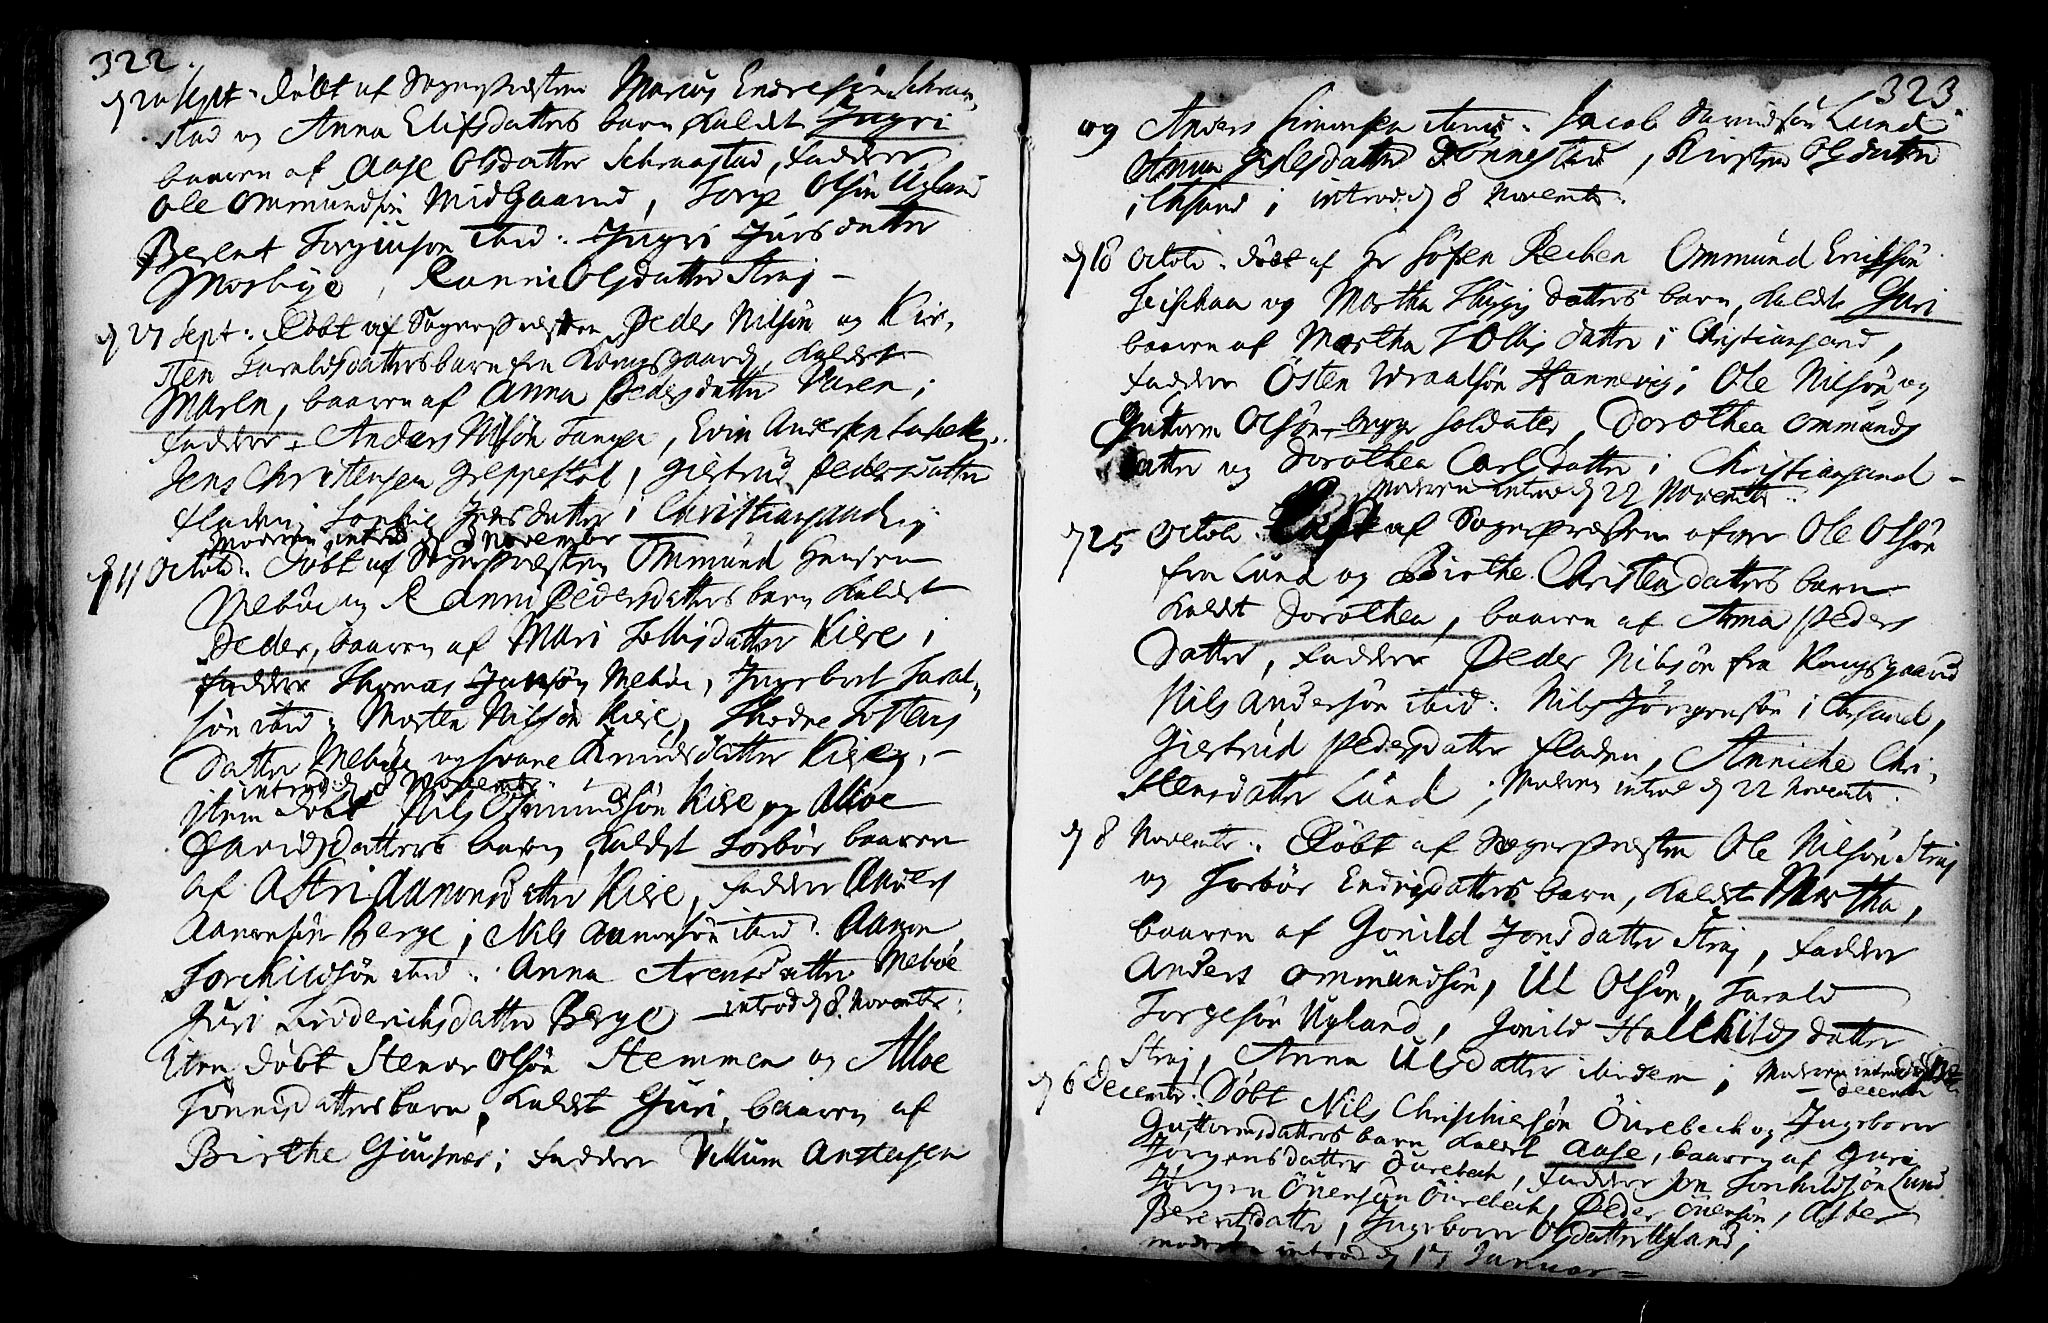 322.
d 20 Sept. Döbt af Sognepræsten Marcus Endresön Schraa-
stad og Anna Elifsdatters barn kaldet Ingri
baaren af Aase Olsdatter Schraastad, Fadder
Ole Ommundsön Midgaard, Torge Olsön Ugland
Berent Torgiusön ibid: Ingri Jursdatter
Mosbye, Ranni Olsdatter Straj –
d 27 Sept: Döbt af Sognepræsten Peder Nilsön og Kir-
sten Taraldsdatters barn fra Kongsgaard, kaldet
Maren, baaren af Anna Pedersdatter
Fadder Anders Nilsön Tangen, Evin Andersen
Jens Christensen Greppestöl, Giertrud Pedersdatter
Fladen, Sophie Jensdatter i Christiansand;
Moderen introd d 8 November
d 11 Octob: Döbt af Sognepræsten Ommund Hansen
Meböe og Ranni Pedersdatters barn kaldet
Peder, baaren af Mari Tollisdatter Kiere;
Fadder Thomas Jensön Meböe, Ingebort Taral-
sön ibid: Morten Nilsön Kiere, Thodne Tostens
datter Meböe og Svane Knudsdatter Kiere, –
introd: d 8 Novembr
item Döbt Nils Omundsön Kiere og Alloe
Davidsdatters barn, kaldet Torbör baaren
af Astri Aanonsdatter Kiere, Fadder Anders
Aanonsön Berge, Nils Aanonsön ibid: Aanon
Torchildsön ibid: Anna Arensdatter Meböe
Guri Friderichsdatter Berge – introd d 8. Novembr:
Item döbt Stenar Olsön Stemmen og Alloe
Tönnisdatters barn, kaldet Guri, baaren af
Birthe; Fadder Villum Anstensen
323
og Anders Simonsen ibid: Jacob Davidsön Lund
Gislesdatter Dönnestad, Kirsten Olsdatter
i Chrsand; introd: d 8 Novembr:
d 18 Octob: döbt af Hr Söfren Ommund Erichsön
og Martha datters barn, kaldt Guri
baaren af Martha Tollisdatter i Christiansand,
Fadder Östen Wraalsön Hannevig; Ole Nilsön og
Guttorm Olsön, begge Soldater, Dorothea Ommunds
datter og Dorothea Carlsdatter i Christiansand –
Moderen introd d 22 Novembr:
d 25 Octob: af Sognepræsten Ole Olsön
fra Lund og Birthe Christensdatters barn
kaldet Dorothea, baaren af Anna Peders
datter, Fadder Peder Nilsön fra Kongsgaard
Nils Andersön ibid: Nils Jörgensön i Chrsand,
Giertrud Pedersdatter Fladen, Anniche Chri-
stensdatter Lund; Moderen introd d 22 Novembr:
d 8 Novembr: Döbt af Sognepræsten Ole Nilsön Straj
og Torbör Endrisdatters barn, kaldet Martha,
baaren af Gonild Jonsdatter Straj, Fadder
Anders Ommundsön, Ul Olsön, Tarald
Torgesön Ugland, Gonild Halchildsdatter
Straj, Anna Ulsdatter ibidem; Moderen introd
decembr
d 6 Decembr: Döbt Nils Christophersön Öurebech og Ingebor
Guttormsdatters barn kaldet Aase, baaren af Guri
Jörgensdatter Öurebech, Fadder Jon Torchildsön Lund
Jörgen Öuensön Öurebech, Peder Öuensön, Asber
Berentsdatter, Ingebor Olsdatter Ugland;
moderen introd d 17 Januar =